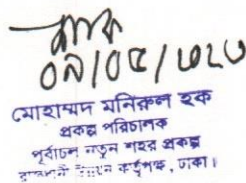 ০৯/০৫/২০২৩
মোহাম্মদ মনিরুল হক
প্রকল্প পরিচালক
পূর্বাচল নতুন শহর প্রকল্প
কর্তৃপক্ষ, ঢাকা।